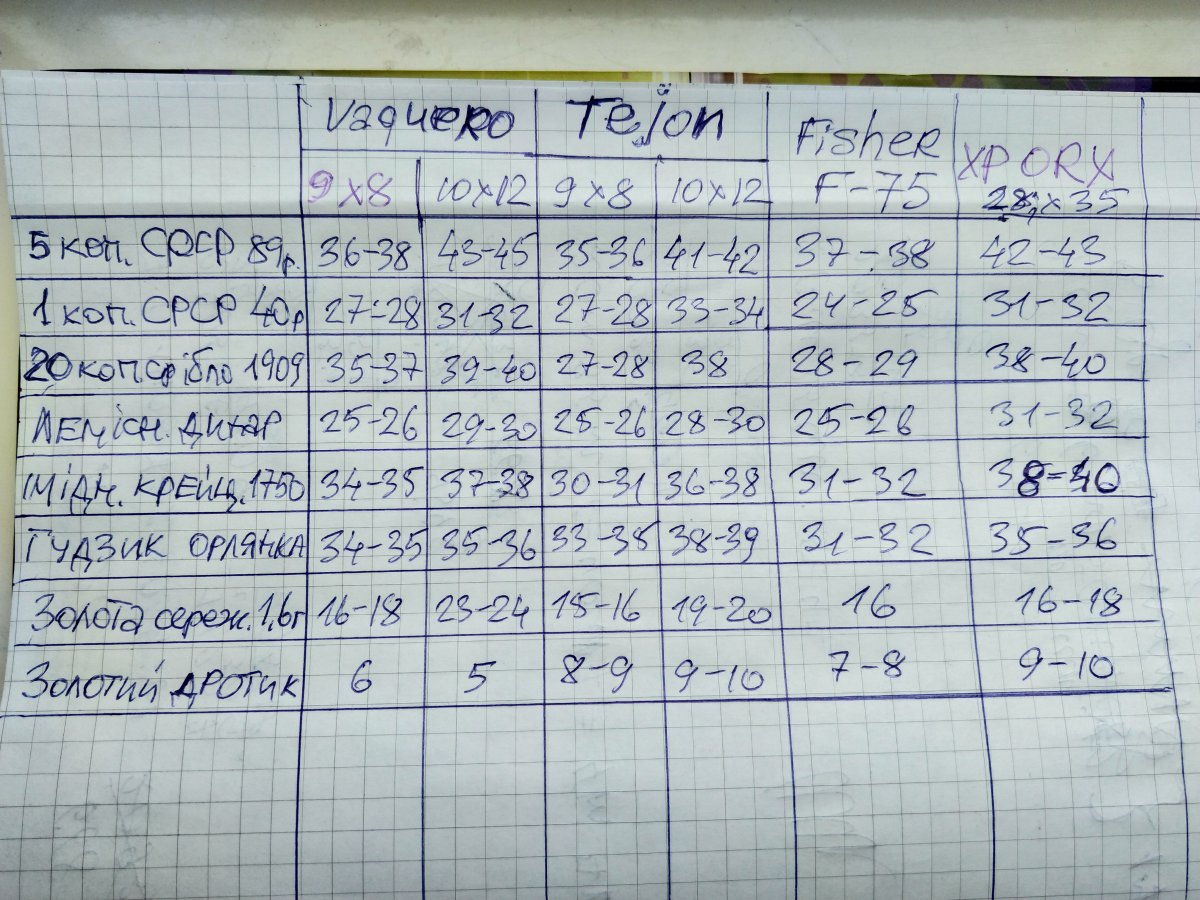 Vaquero Tejon Fisher F-75 XP ORX
9x8 10x12 9x8 10x12 28 x 35
5 коп. СРСР 89р. 36-38 43-45 35-36 41-42 37-38 42-43
1 коп. СРСР 40р 27-28 31-32 27-28 33-34 24-25 31-32
20 коп. срібло 1909 35-37 39-40 27-28 38 28-29 38-40
Лемісн. Динар 25-26 29-30 25-26 28-30 25-26 31-32
Мідн. Крейц. 1750 34-35 37-38 30-31 36-38 31-32 38-40
Гудзик орлянка 34-35 35-36 33-35 38-39 31-32 35-36
Золота сереж. 1,6г 16-18 23-24 15-16 19-20 16 16-18
Золотий дротик 6 5 8-9 9-10 7-8 9-10